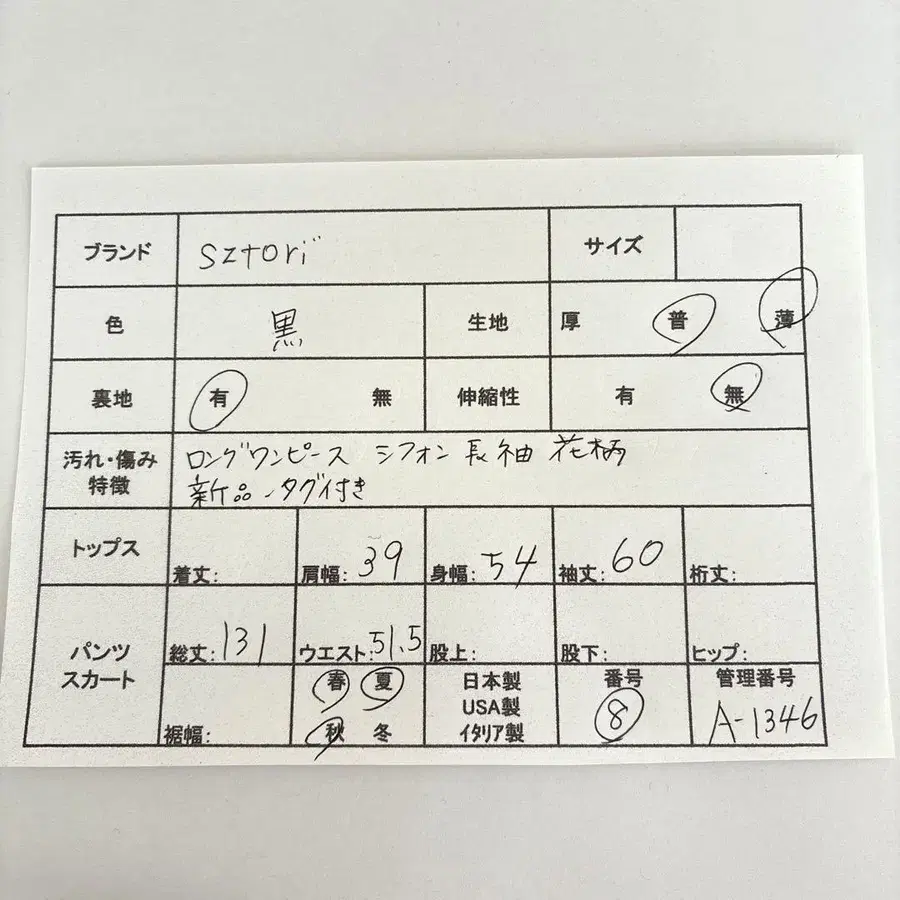 ブランド sztori サイズ
色 黒 生地 厚 普 薄
裏地 有 無 伸縮性 有 無
汚れ・傷み
特徴
ロングワンピース シフォン 長袖 花柄
新品、タグ付き
トップス 着丈: 肩幅: 39 身幅: 54 袖丈: 60 桁丈:
パンツ
スカート
総丈: 131 ウエスト: 51.5 股上: 股下: ヒップ:
裾幅:
春 夏
秋 冬
日本製
USA製
イタリア製
番号
8
管理番号
A-1346